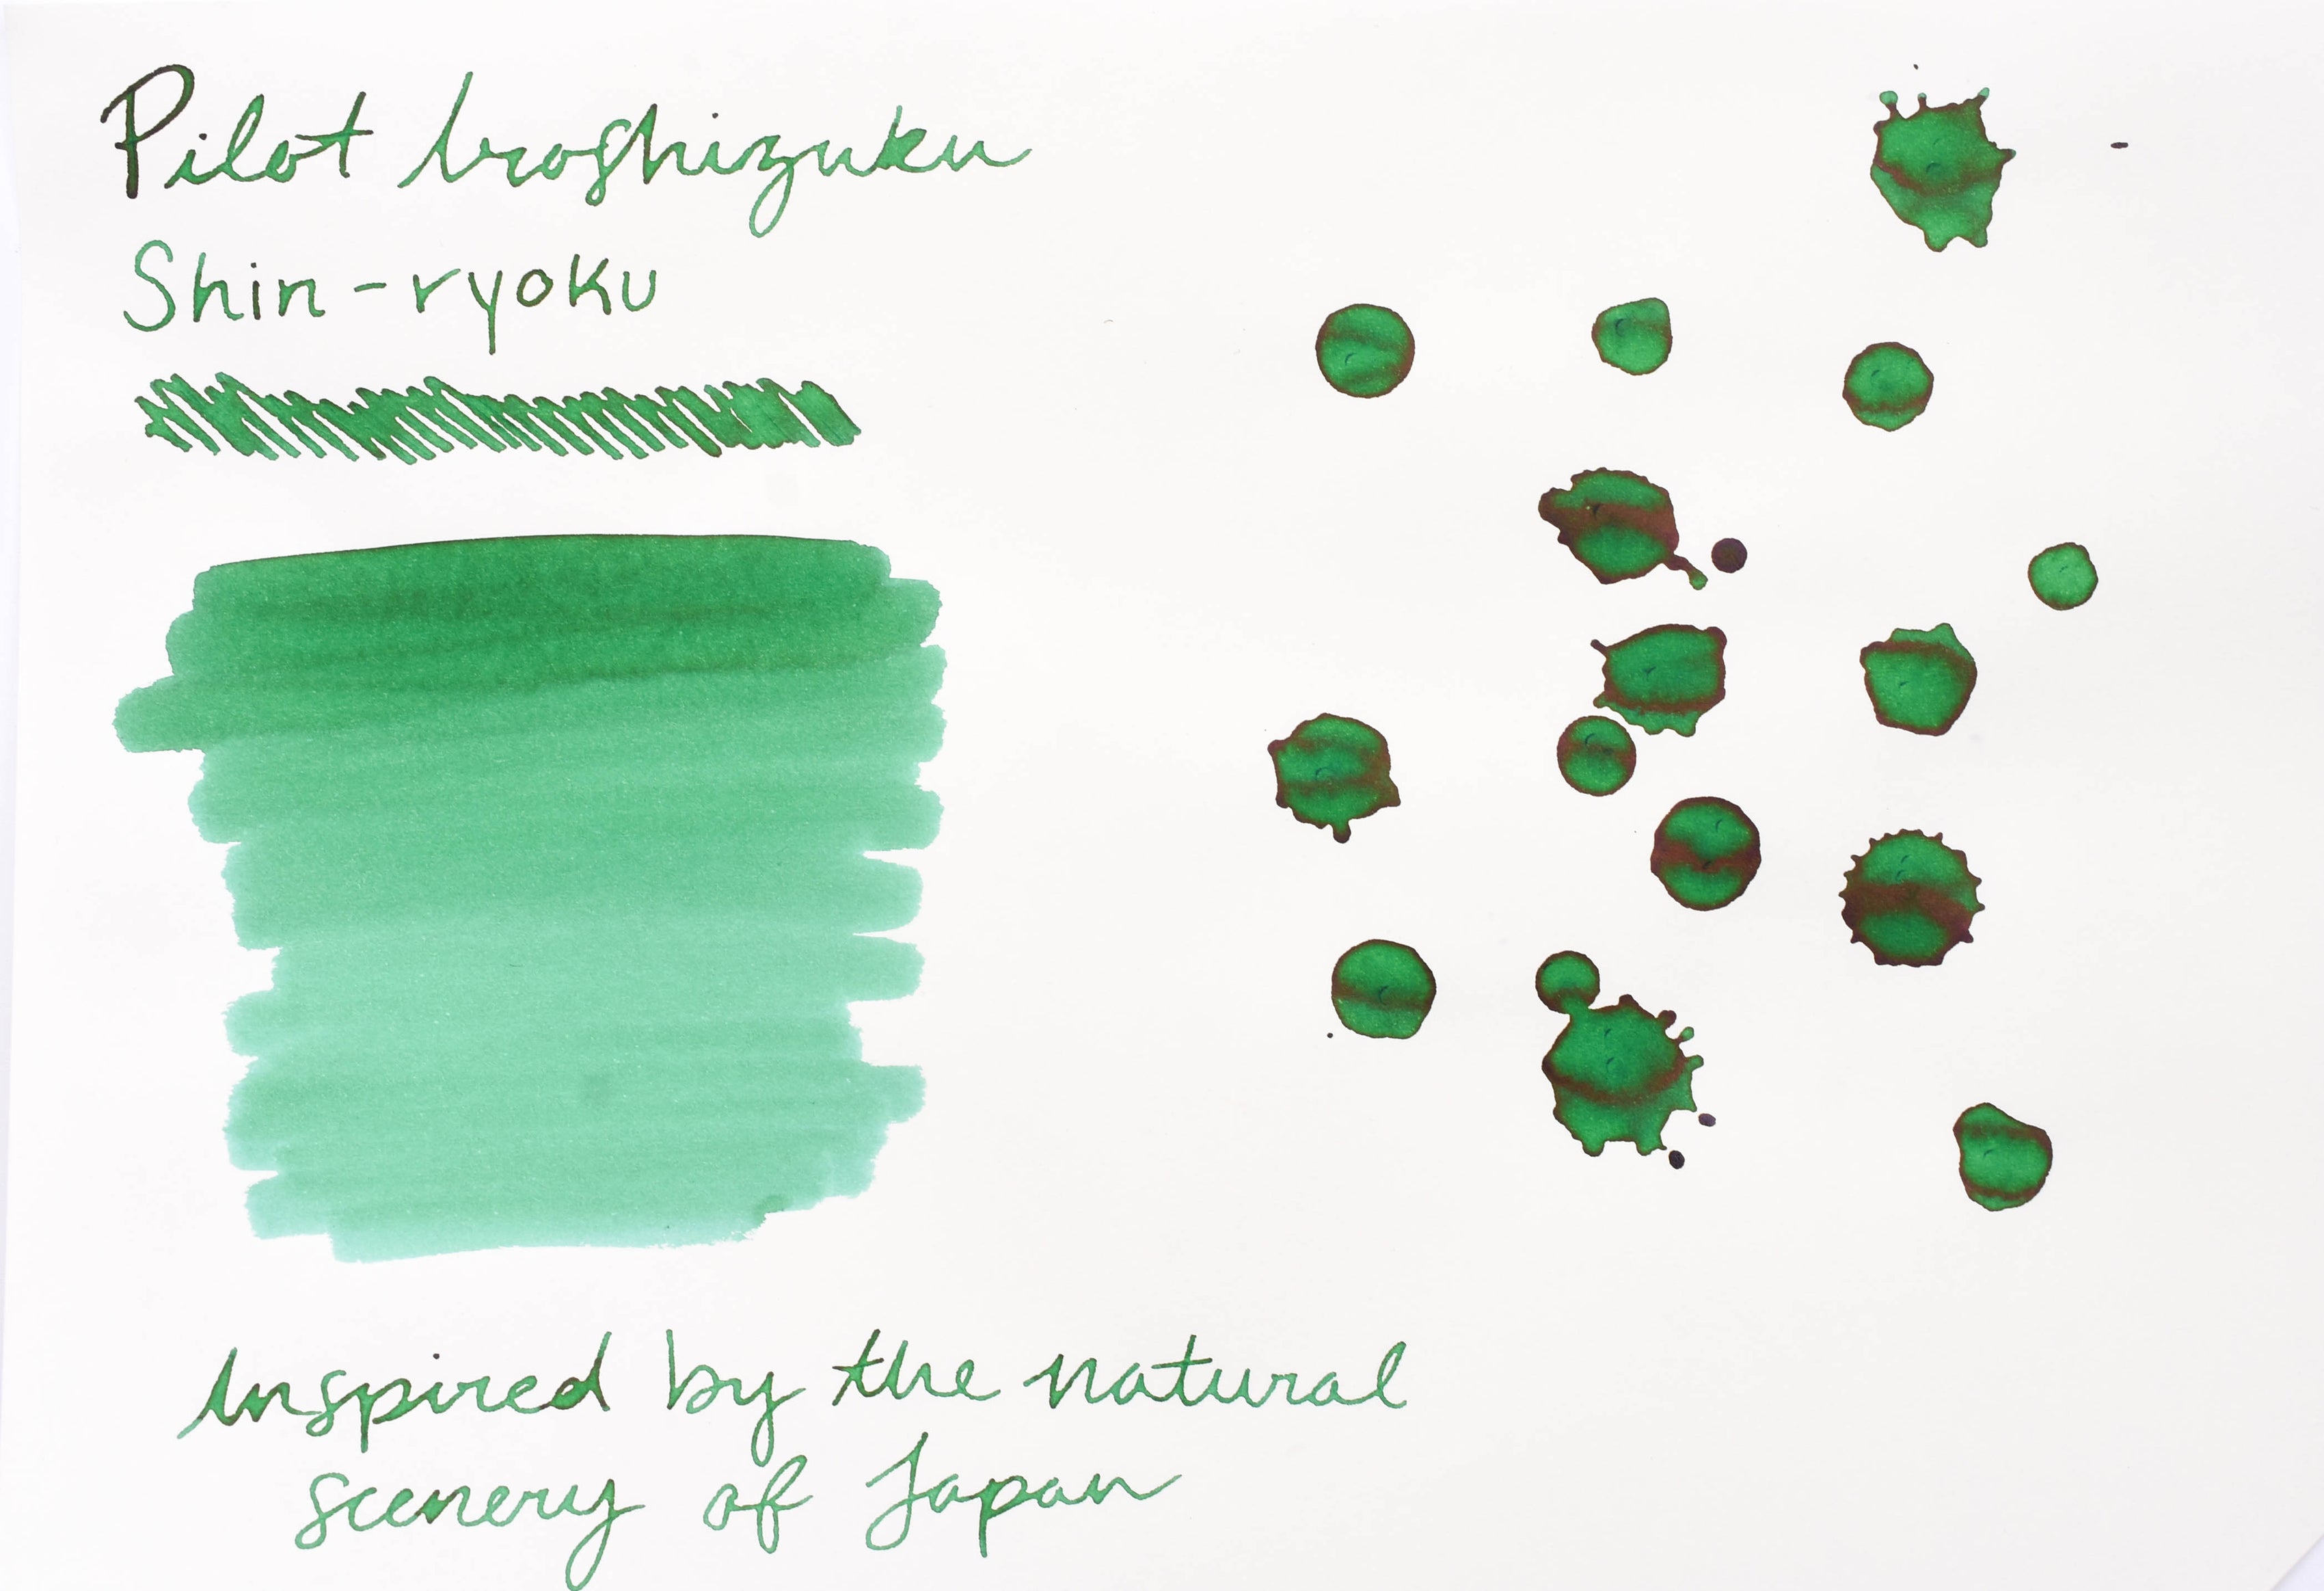 Pilot Iroshizuku
Shin-ryoku
Inspired by the natural
scenery of Japan